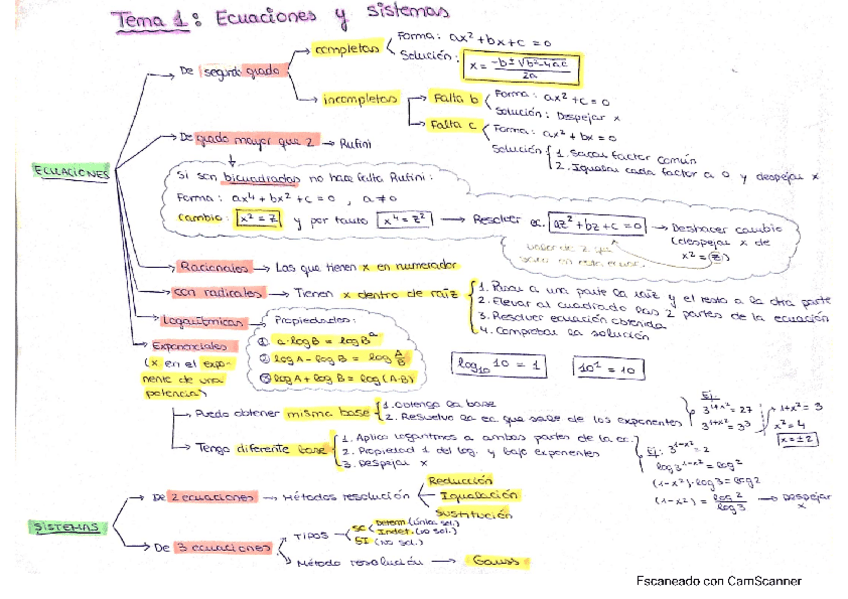 Tema 1: Ecuaciones y sistemas
ECUACIONES
De segundo grado
completas
Forma: ax² + bx + c = 0
Solución: x = -b ± √b²-4ac / 2a
incompletas
Falta b
Forma: ax² + c = 0
Solución: Despejar x
Falta c
Forma: ax² + bx = 0
Solución
1. Sacar factor común
2. Igualar cada factor a 0 y despejar x
De grado mayor que 2 → Rufini
Si son bicuadradas no hace falta Rufini:
Forma: ax⁴ + bx² + c = 0, a ≠ 0
Cambio: x² = z y por tanto x⁴ = z² → Resolver ec. az² + bz + c = 0 → Deshacer cambio
(despejar x de
x² = z)
Racionales → Las que tienen x en numerador
con radicales → Tienen x dentro de raíz
1. Pasar a una parte la raíz y el resto a la otra parte
2. Elevar al cuadrado las 2 partes de la ecuación
3. Resolver ecuación obtenida
4. Comprobar la solución
Logarítmicas → Propiedades:
① a·log B = log Bᵃ
② log A - log B = log A/B
③ log A + log B = log (A·B)
log₁₀ 10 = 1
10¹ = 10
Exponenciales
(x en el expo-
nente de una
potencia)
Puedo obtener misma base
1. Obtengo la base
2. Resuelvo la ec que sale de los exponentes
Ej:
3^1+x² = 27
3^1+x² = 3³
1+x² = 3
x² = 4
x = ±2
Tengo diferente base
1. Aplico logaritmos a ambas partes de la ec.
2. Propiedad 1 del log. y bajo exponentes
3. Despejar x
Ej: 3^1-x² = 2
log 3^1-x² = log 2
(1-x²)·log 3 = log 2
(1-x²) = log 2 / log 3 → Despejar x
SISTEMAS
De 2 ecuaciones → Métodos resolución
Reducción
Igualación
Sustitución
De 3 ecuaciones
TIPOS
SC
Determ. (única sol.)
Indet. (∞ sol.)
SI (no sol.)
Método resolución → Gauss
Escaneado con CamScanner